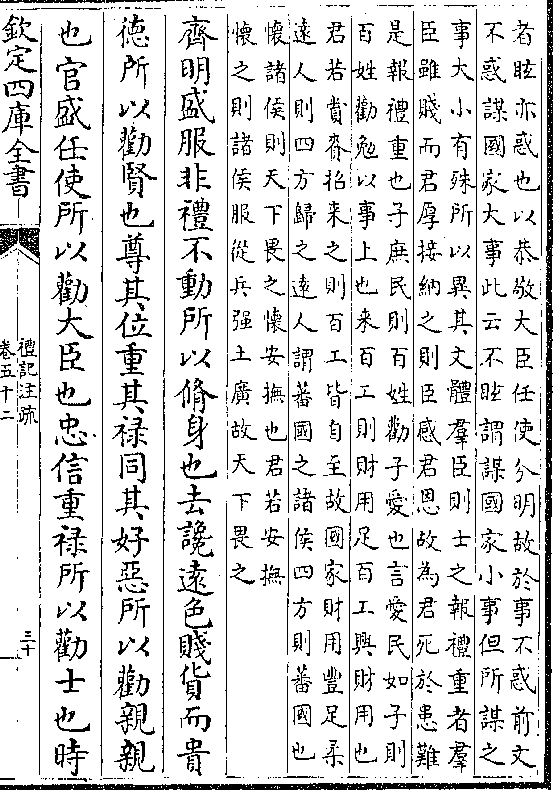 者眩亦惑也以恭敬大臣任使分明故於事不惑前文
不惑謀國家大事此云不眩謂謀國家小事但所謀之
事大小有殊所以異其文體羣臣則士之報禮重者羣
臣雖賤而君厚接納之則臣感君恩故為君死於患難
是報禮重也子庶民則百姓勸子愛也言愛民如子則
百姓勸勉以事上也来百工則財用足百工興財用也
君若賞賚招来之則百工皆自至故國家財用豐足柔
逺人則四方歸之逺人謂蕃國之諸侯四方則蕃國也
懷諸侯則天下畏之懷安撫也君若安撫
懷之則諸侯服從兵强土廣故天下畏之
齊明盛服非禮不動所以脩身也去讒逺色賤貨而貴
徳所以勸賢也尊其位重其禄同其好惡所以勸親親
也官盛任使所以勸大臣也忠信重禄所以勸士也時
欽定四庫全書
禮記注疏
卷五十二
三十